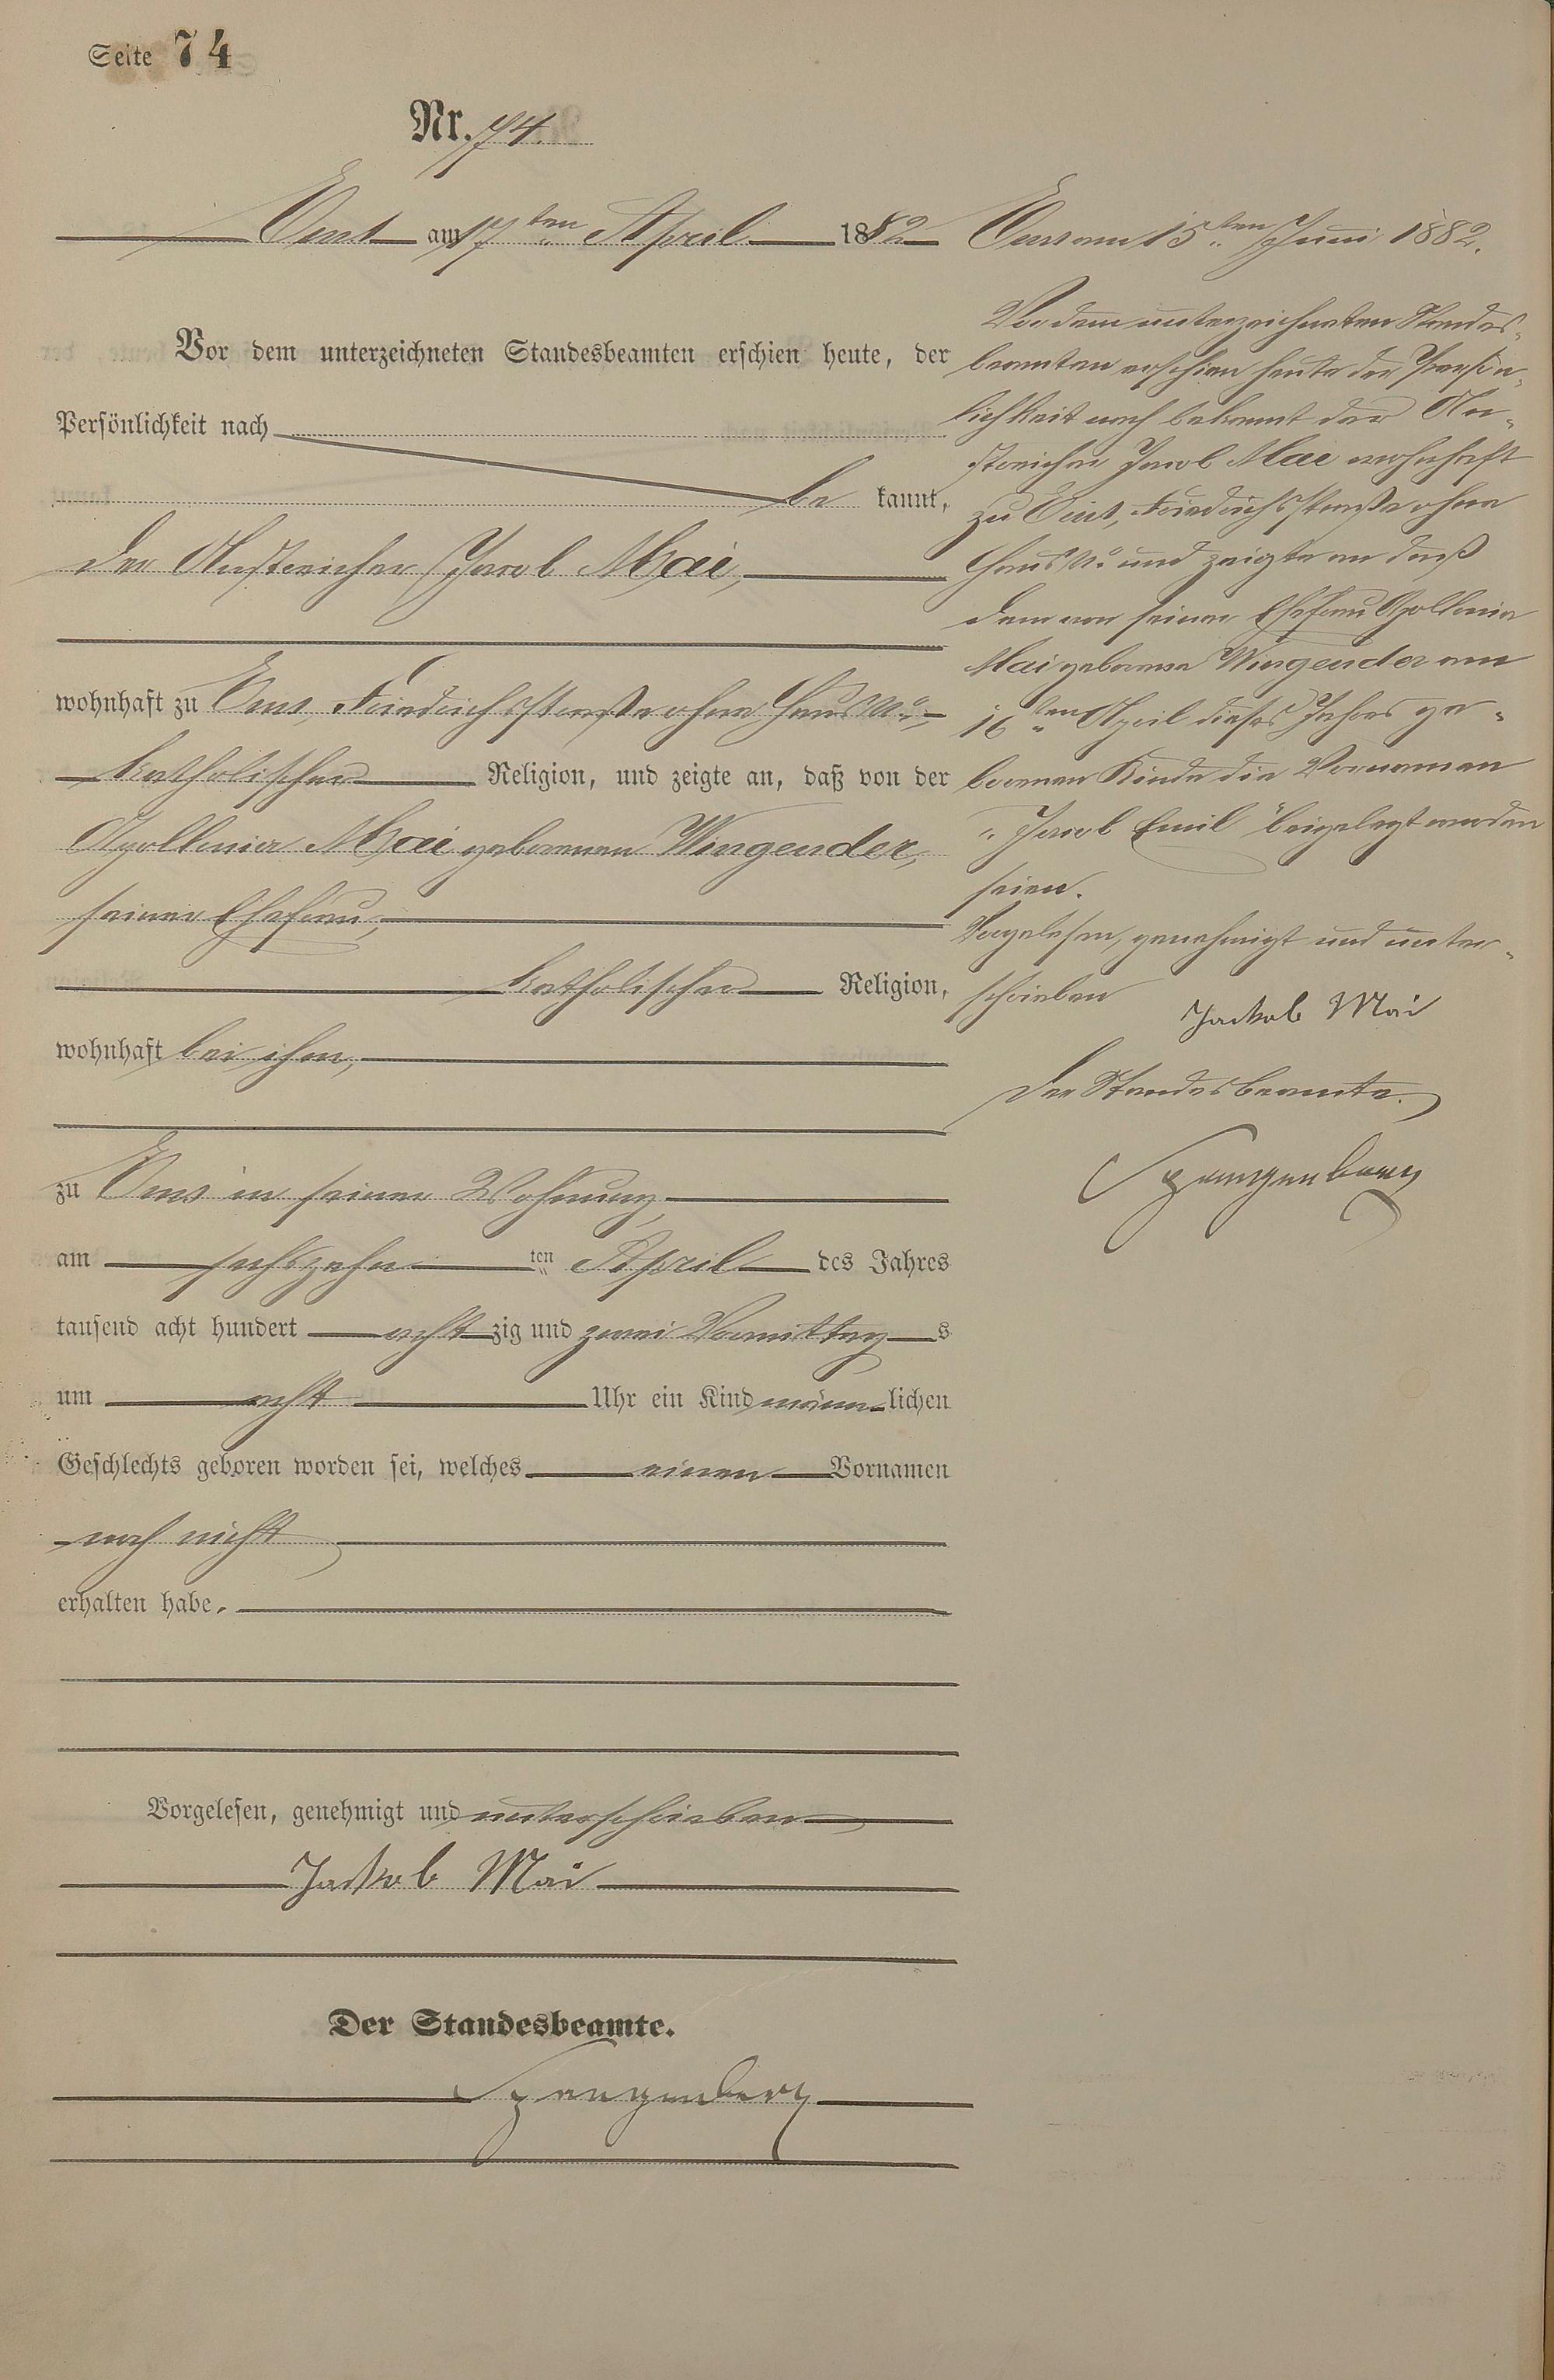 Seite 74
Nr. 74.
Ems am 17ten April 1882
Vor dem unterzeichneten Standesbeamten erschien heute, der
Persönlichkeit nach
be kannt,
der Anstreicher Jacob Mai,
wohnhaft zu Ems, Friedrichsstraße ohne Haus No,
katholischer Religion, und zeigte an, daß von der
Apollonia Mai geborenen Wingender,
seiner Ehefrau,
katholischer Religion,
wohnhaft bei ihm,
zu Ems in seiner Wohnung
am sechszehn ten April des Jahres
tausend acht hundert acht zig und zwei Vormittag s
um acht Uhr ein Kind männ lichen
Geschlechts geboren worden sei, welches einen Vornamen
noch nicht
erhalten habe.
Vorgelesen, genehmigt und unterschrieben
Jackob Mai
Der Standesbeamte.
Spangenberg
Ems am 15ten Juni 1882.
Vor dem unterzeichneten Standes-
beamten erschien heute der Persön-
lichkeit nach bekannt der An-
streicher Jacob Mai wohnhaft
zu Ems, Friedrichsstraße ohne
Haus No und zeigte an daß
dem von seiner Ehefrau Apollonia
Mai geborene Wingender am
16ten April dieses Jahres ge-
borenen Kinde die Vornamen
"Jacob Emil" beigelegt worden
seien.
Vorgelesen, genehmigt und unter-
schrieben
Jackob Mai
Der Standesbeamte.
Spangenberg